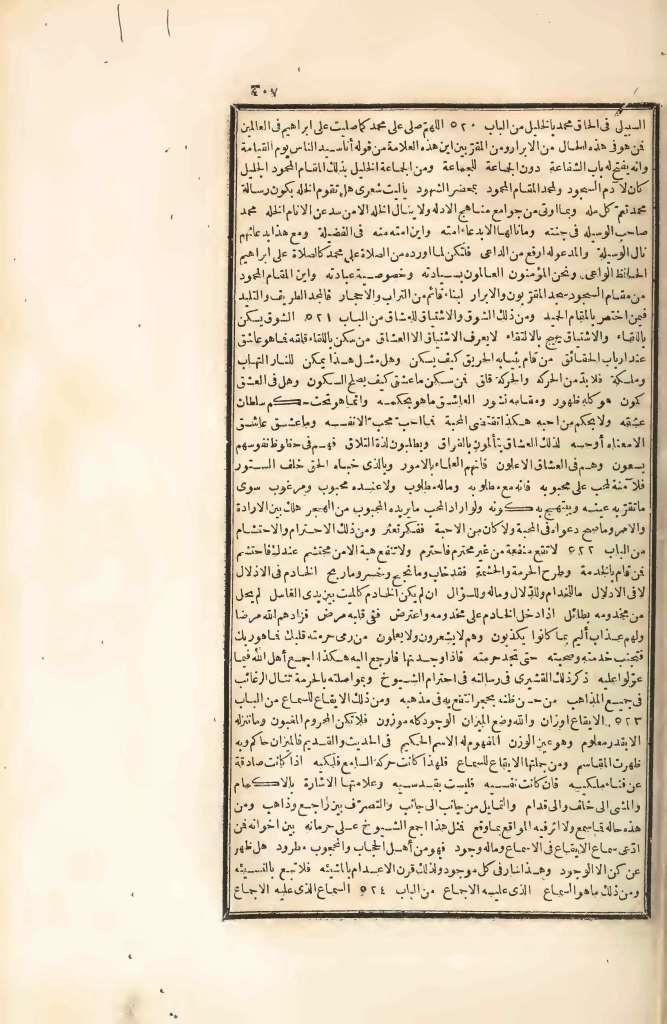 ٤٠٧
السبيل فى الحاق محمد بالخليل من الباب ٥٢٠ اللهم صلى على محمد كما صليت على ابراهيم فى العالمين
فمن هو فى هذه الحال من الابرار ومن المقربين اين هذه العلامة من قوله أنا سيد الناس يوم القيامة
وانه يفتح له باب الشفاعة دون الجماعة للجماعة ومن الجماعة الخليل بذلك المقام المحمود الجليل
كان لآدم السجود ولمحمد المقام المحمود بمحضر الشهود ياليت شعرى هل تقوم الخله بكون رسالة
محمد تعم كل مله وبما اوتى من جوامع مناهج الادله ولا ينال الخله الامن سد عن الانام الخله محمد
صاحب الوسيله فى جنته وما نالها الا بدعاء امته واين امته منه فى الفضيلة ومع هذا بدعائهم
نال الوسيلة والمدعوله ارفع من الداعى فلتكن لما اورده من الصلاة على محمد كالصلاة على ابراهيم
الحافظ الواعى ونحن المؤمنون العالمون بسيادته وخصوصية عبادته واين المقام المحمود
من مقام السجود سجد المقربون والابرار لبناء قائم من التراب والاحجار فالمجد الطريف والتليد
فيمن اختص بالمقام الحميد ومن ذلك الشوق والاشتياق للعشاق من الباب ٥٢١ الشوق يسكن
باللقاء والاشتياق يهيج بالالتقاء لا يعرف الاشتياق الا العشاق من سكن باللقاء قلقه فما هو عاشق
عند ارباب الحقائق من قام بثيابه الحريق كيف يسكن وهل مثل هذا يمكن للنار التهاب
وملكة فلا بد من الحركه والحركة قلق فمن سكن ما عشق كيف يصلح السكون وهل فى العشق
كمون هو كله ظهور ومقامه نشور العاشق ما هو بحكمه وانما هو تحت حكم سلطان
عشقه ولا بحكم من احبه هكذا تقتضى المحبة فما احب محب الانفسه وما عشق عاشق
الا معناه أوحسه لذلك العشاق يتألمون بالفراق ويطلبون لذة التلاق فهم فى حظوظ نفوسهم
يسعون وهم فى العشاق الاعلون فانهم العلماء بالامور وبالذى خباه الحق خلف الستور
فلا منة لمحب على محبوبه فانه مع مطلوبه وماله مطلوب ولا عنده محبوب ومرغوب سوى
ما تقر به عينه ويبتهج به كونه ولو اراد المحب ما يريده المحبوب من الهجر هلك بين الارادة
والامر وما صح دعواه فى المحبة ولا كان من الاحبة ففكر تعثر ومن ذلك الاحترام والاحتشام
من الباب ٥٢٢ لا تقع منفعة من غير محترم فاحترم ولا تنفع هبة الامن محتشم عندك فاحتشم
فمن قام بالخدمة وطرح الحرمة والحشمة فقد خاب وما نجح وخسر وما ربح الخادم فى الاذلال
لا فى الادلال ما للخدام وللدلال وماله وللسؤال ان لم يكن الخادم كالميت بين يدى الغاسل لم يحل
من مخدومه بطائل اذا دخل الخادم على مخدومه واعترض ففى قلبه مرض فزادهم الله مرضا
ولهم عذاب أليم بما كانوا يكذبون وهم لا يشعرون ولا يعلمون من رمى حرمته قلبك فما هو ربك
فتجنب خدمته وصحبته حتى تجد حرمته فاذا وجدتها فارجع اليه هكذا اجمع أهل الله فيما
عولوا عليه ذكر ذلك القشيرى فى رسالته فى احترام الشيوخ وبمواصلته بالحرمة تنال الرغائب
فى جميع المذاهب من حسن ظنه بحجر انتفع به فى مذهبه ومن ذلك الايقاع للسماع من الباب
٥٢٣ الايقاع اوزان والله وضع الميزان الوجود كله موزون فلا تكن المحروم المغبون وما ننزله
الا بقدر معلوم وهو عين الوزن المفهوم له الاسم الحكيم فى الحديث والقديم فالميزان حاكم وبه
ظهرت المقاسم ومن جملتها الايقاع للسماع فلهذا كانت حركة السامع فلكيه اذا كانت صادقة
عن فناء ملكيه فان كانت نفسيه فليست بقدسيه وعلامتها الاشارة بالاكمام
والمشى الى خلف والى قدام والتمايل من جانب الى جانب والتصرف بين راجع وذاهب ومن
هذه حاله فما سمع ولا اثر فيه المواقع بما وقع فمثل هذا اجمع الشيوخ على حرمانه بين اخوانه فمن
ادعى سماع الايقاع فى الاسماع وماله وجود فهو من أهل الحجاب والمحجوب مطرود هل ظهر
عن كن الا الوجود وهذا سار فى كل موجود ولذلك قرن الاعدام بالمشيئه فلا تبع بالنسيئه
ومن ذلك ما هو السماع الذى عليه الاجماع من الباب ٥٢٤ السماع الذى عليه الاجماع